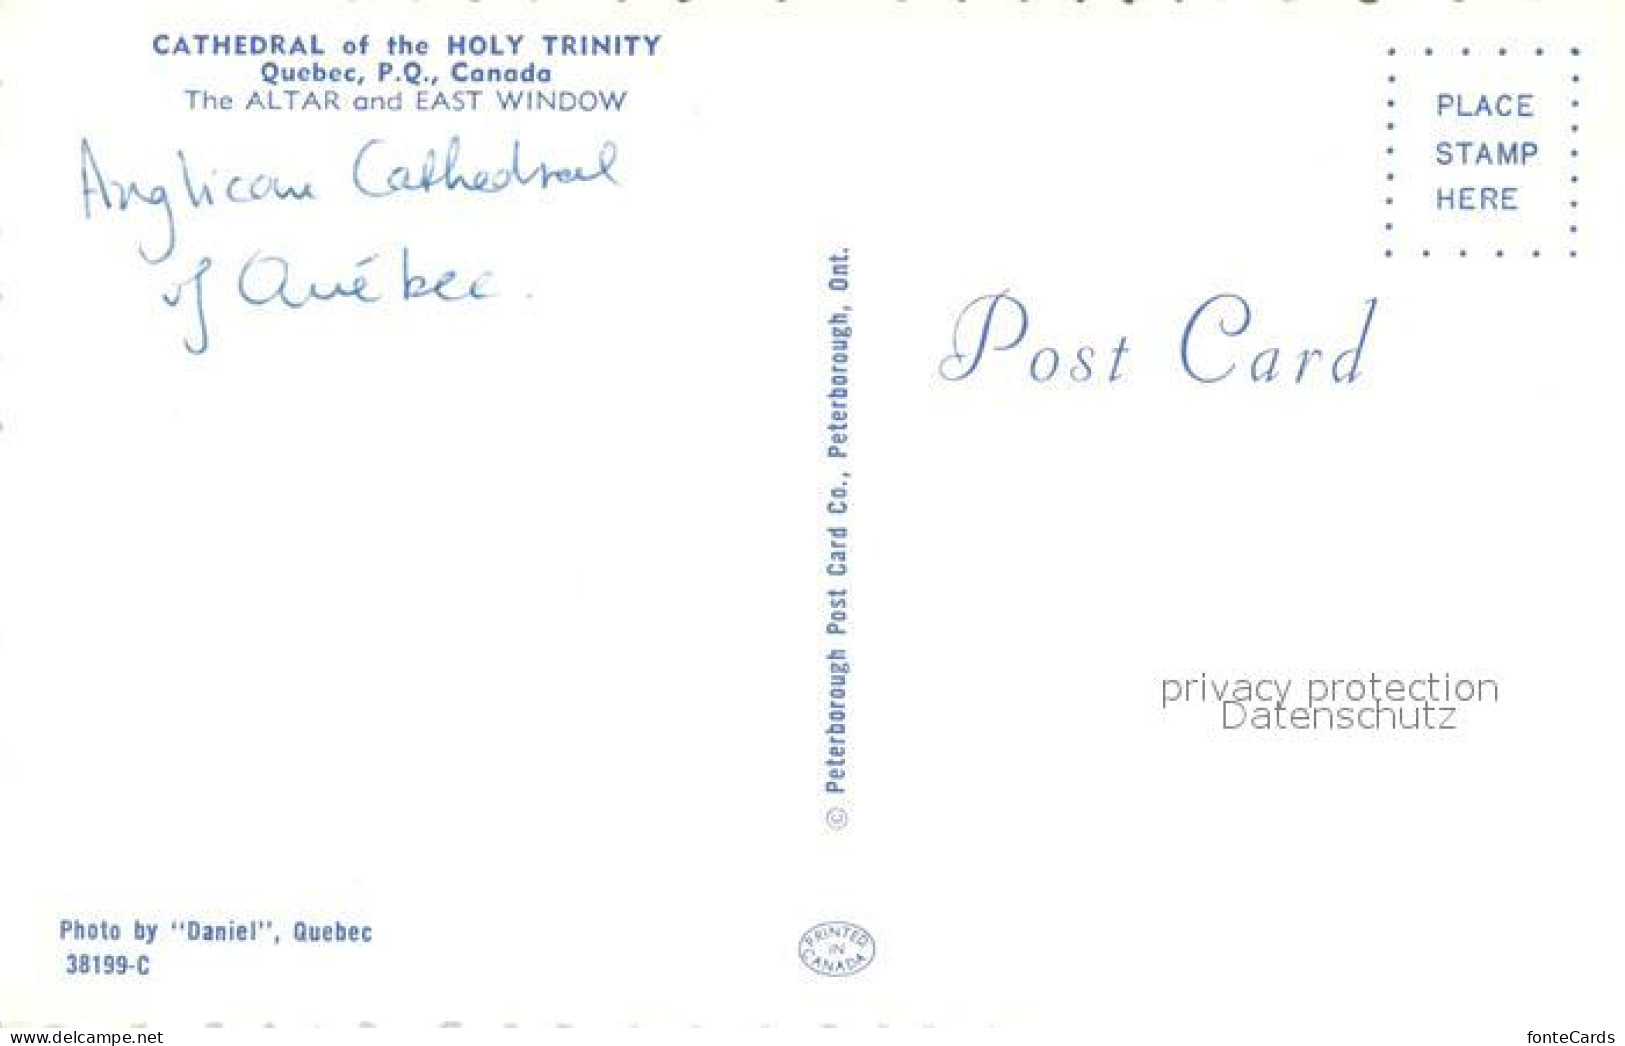 CATHEDRAL of the HOLY TRINITY
Quebec, P.Q., Canada
The ALTAR and EAST WINDOW
Anglican Cathedral
of Québec.
PLACE
STAMP
HERE
Post Card
© Peterborough Post Card Co., Peterborough, Ont.
privacy protection
Datenschutz
Photo by "Daniel", Quebec
38199-C
PRINTED
IN
CANADA
www.delcampe.net
fonteCards